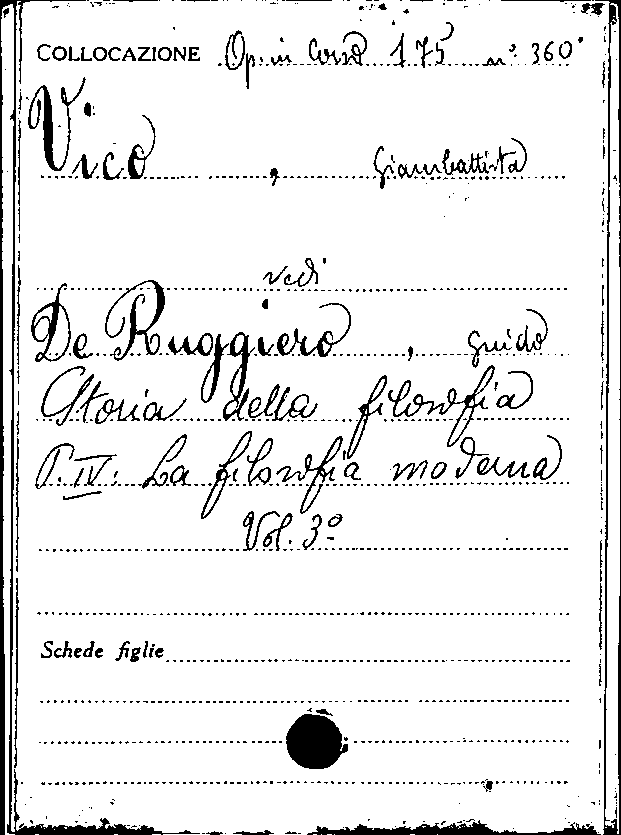 COLLOCAZIONE Op. in Corso 175 n° 360
Vico , Giambattista
vedi
De Ruggiero , Guido
Storia della filosofia
P. IV. La filosofia moderna
Vol. 3º
Schede figlie